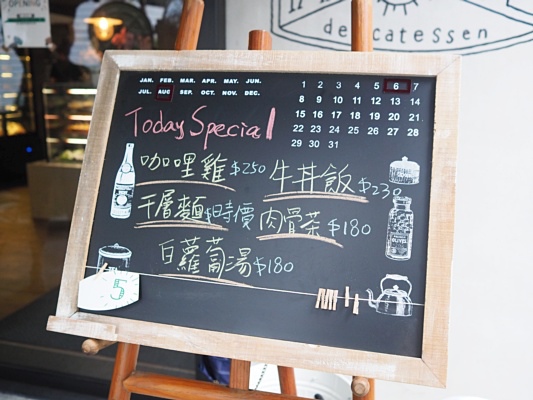 delicatessen
JAN. FEB. MAR. APR. MAY. JUN.
JUL. AUG. SEP. OCT. NOV. DEC.
1 2 3 4 5 6 7
8 9 10 11 12 13 14
15 16 17 18 19 20 21
22 23 24 25 26 27 28
29 30 31
Today Special
咖哩雞 $250
牛丼飯 $230
千層麵 $時價
肉骨茶 $180
白蘿蔔湯 $180
5